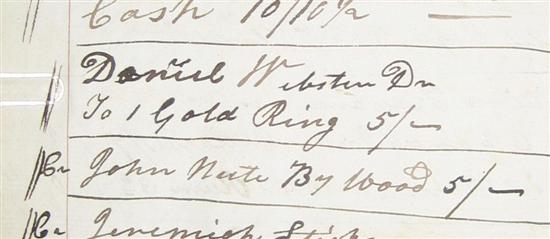 Cash 10/10½
Daniel Webster Dr
To 1 Gold Ring 5/-
Cr John Neete By Wood 5/-
Cr Jeremiah